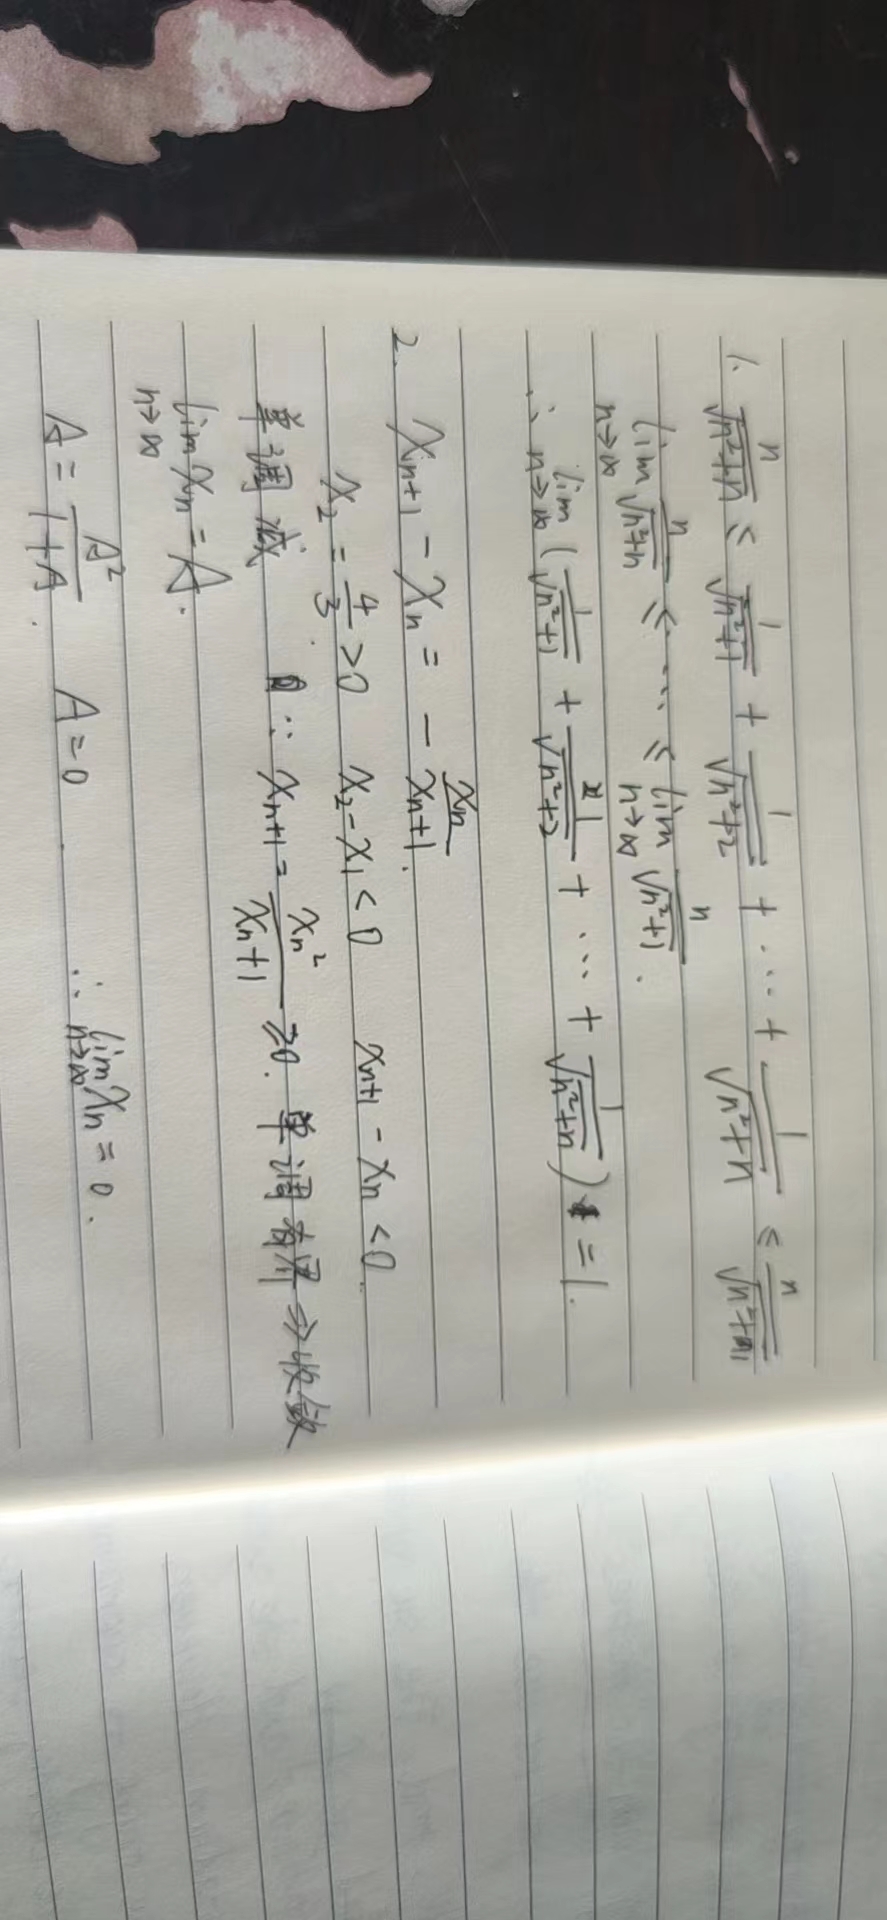 1. n/√(n²+n) ≤ 1/√(n²+1) + 1/√(n²+2) + ... + 1/√(n²+n) ≤ n/√(n²+1)
lim n→∞ n/√(n²+n) ≤ ... ≤ lim n→∞ n/√(n²+1).
∴ lim n→∞ (1/√(n²+1) + 1/√(n²+2) + ... + 1/√(n²+n)) = 1.
2. Xn+1 - Xn = - Xn/(Xn+1).
X2 = 4/3 > 0 X2 - X1 < 0 Xn+1 - Xn < 0.
单调减 ∴ Xn+1 = Xn²/(Xn+1) ≥ 0. 单调有界 ⇒ 收敛
lim n→∞ Xn = A.
A = A²/(1+A). A = 0 ∴ lim n→∞ Xn = 0.